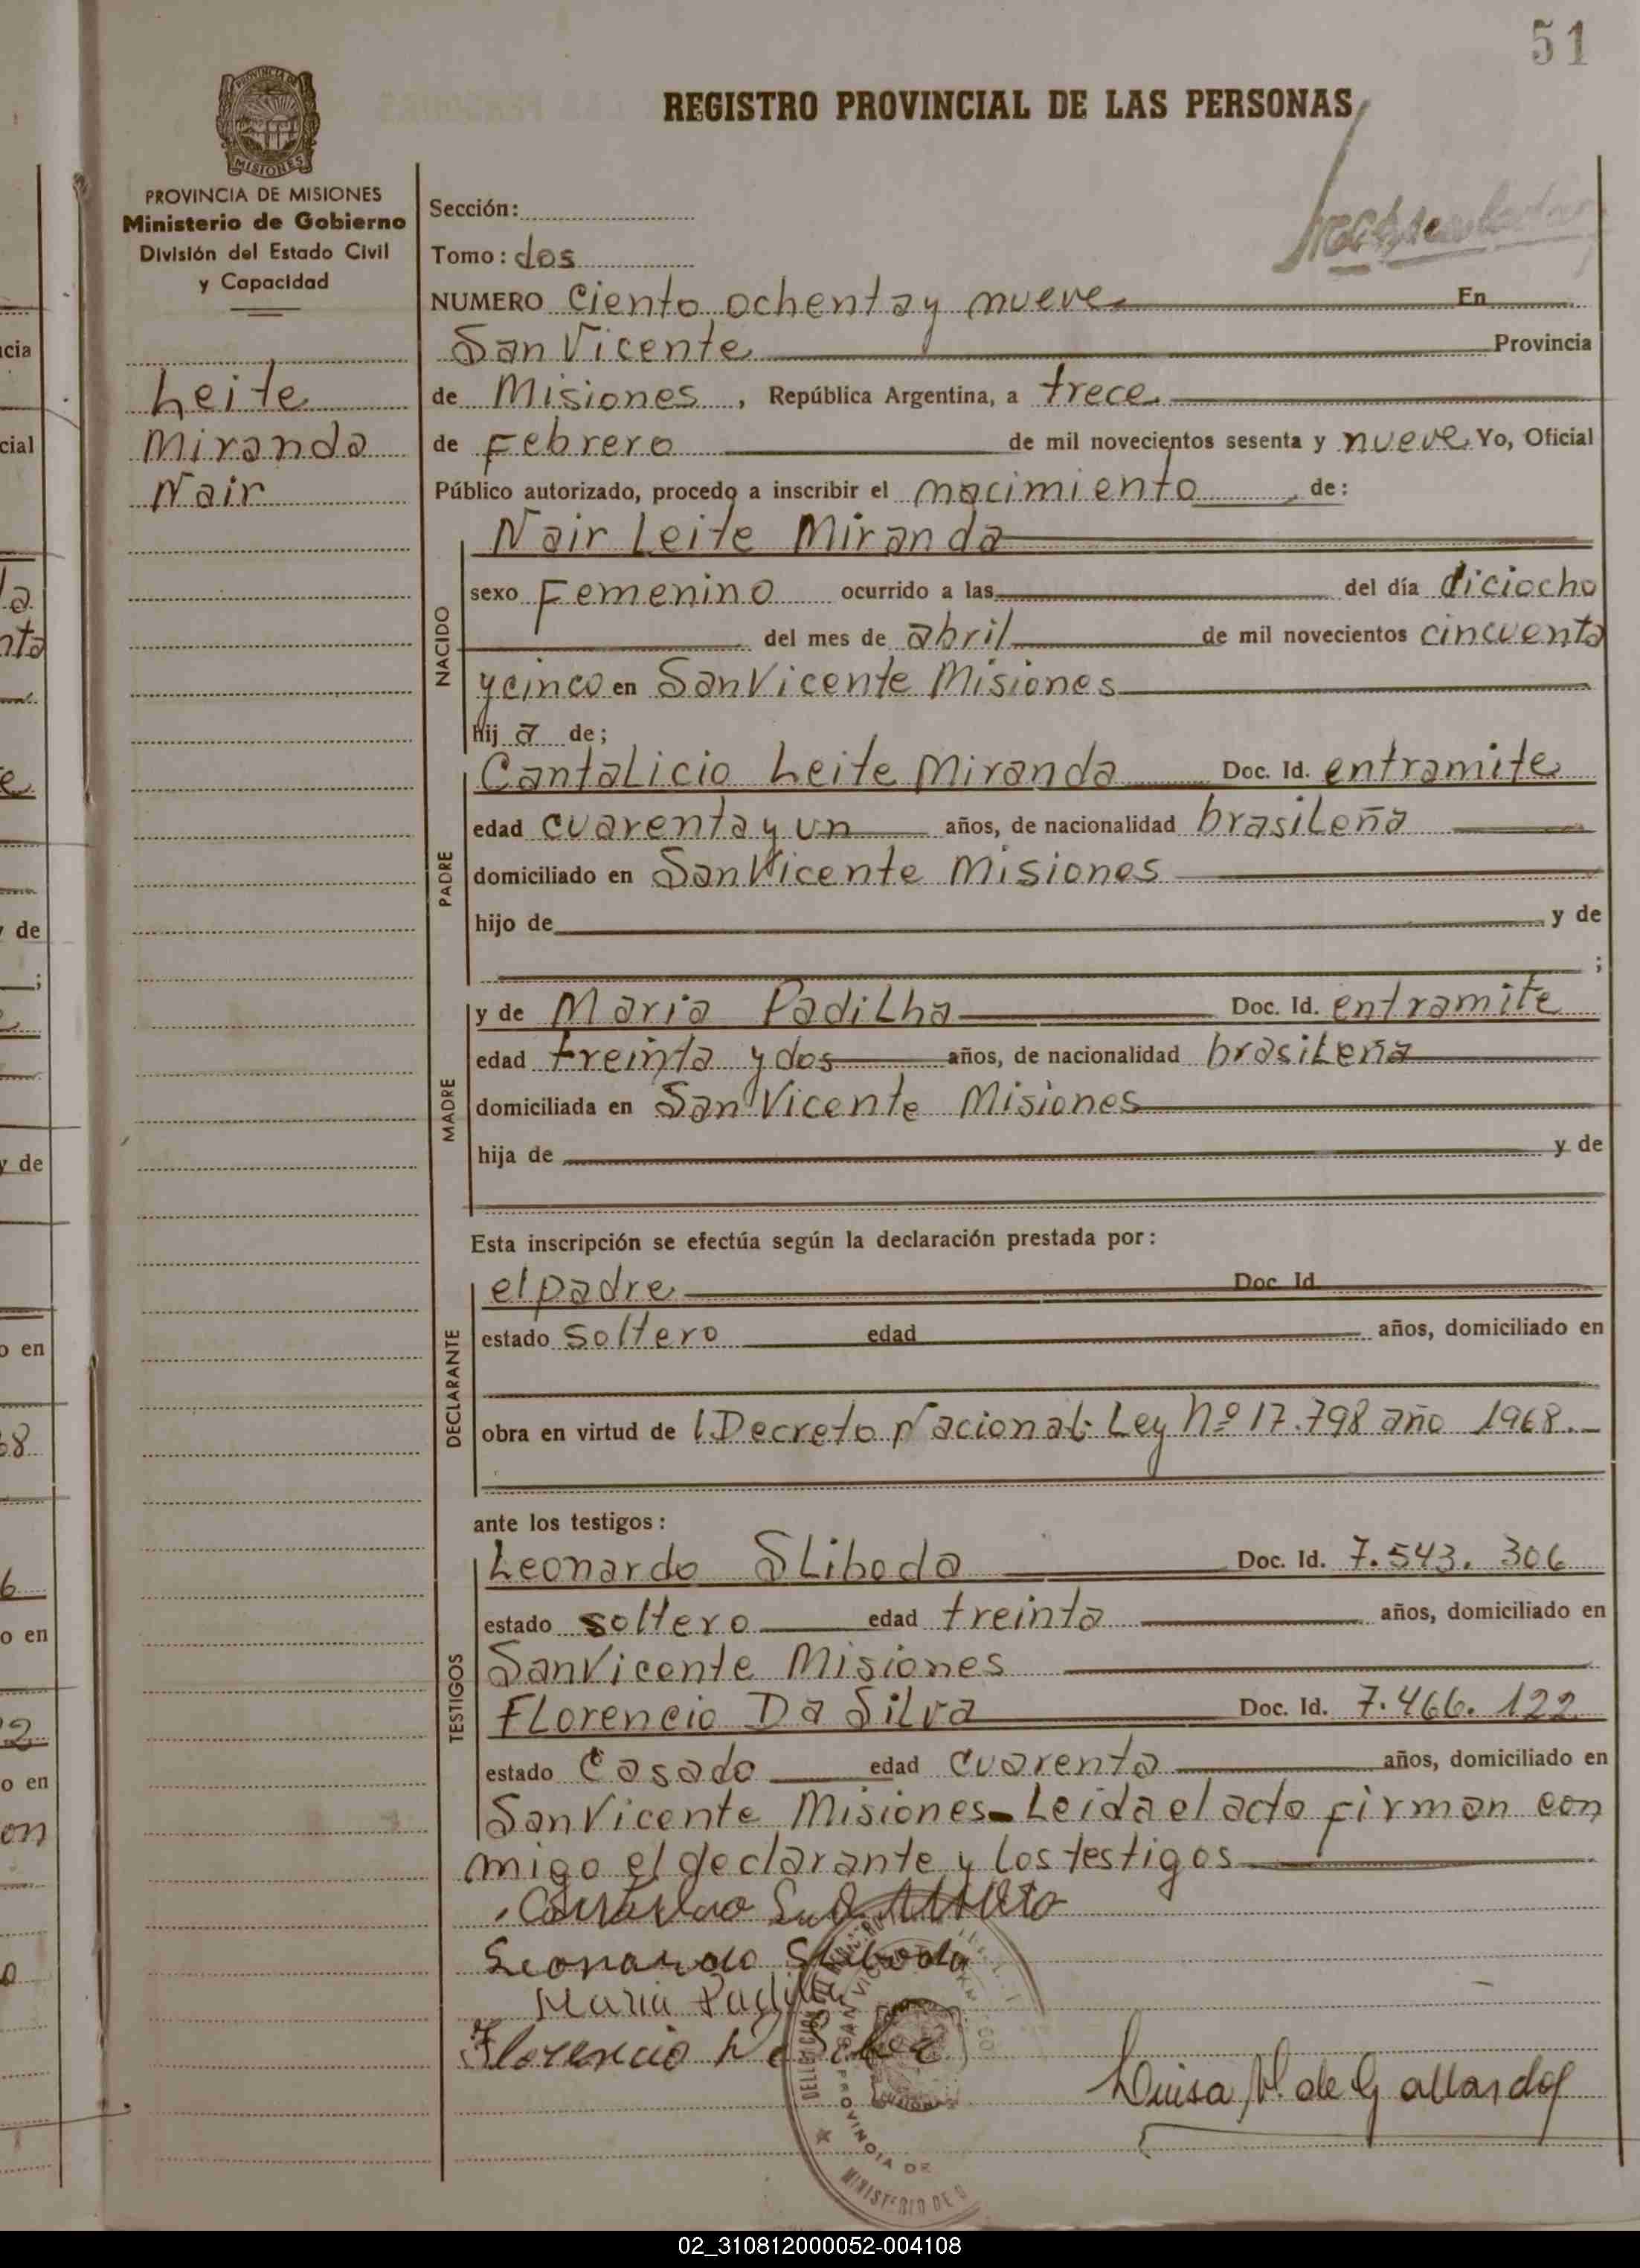 51
REGISTRO PROVINCIAL DE LAS PERSONAS
PROVINCIA DE
MISIONES
PROVINCIA DE MISIONES
Ministerio de Gobierno
División del Estado Civil
y Capacidad
Leite
Miranda
Nair
Sección:
Tomo: dos
NUMERO ciento ochenta y nueve En
San Vicente Provincia
de Misiones, República Argentina, a trece
de Febrero de mil novecientos sesenta y nueve Yo, Oficial
Público autorizado, procedo a inscribir el nacimiento, de:
Nair Leite Miranda
NACIDO
sexo Femenino ocurrido a las del día diciocho
del mes de abril de mil novecientos cincuenta
y cinco en San Vicente Misiones
hij a de;
PADRE
Cantalicio Leite Miranda Doc. Id. entramite
edad cuarenta y un años, de nacionalidad brasileña
domiciliado en San Vicente Misiones
hijo de y de
;
MADRE
y de Maria Padilha Doc. Id. entramite
edad treinta y dos años, de nacionalidad brasileña
domiciliada en San Vicente Misiones
hija de y de
Esta inscripción se efectúa según la declaración prestada por:
DECLARANTE
el padre Doc. Id.
estado soltero edad años, domiciliado en
obra en virtud de l Decreto Nacional-Ley Nº 17.798 año 1968.-
ante los testigos:
TESTIGOS
Leonardo Sliboda Doc. Id. 7.543.306
estado soltero edad treinta años, domiciliado en
San Vicente Misiones
Florencio Da Silva Doc. Id. 7.466.122
estado Casado edad cuarenta años, domiciliado en
San Vicente Misiones- Leida el acto firman con
migo el declarante y los testigos
Leonardo Sliboda
Maria Padilha
Florencio Da Silva
Luisa V. de Gallardo
PROVINCIA DE
MINISTERIO DE G
02_310812000052-004108